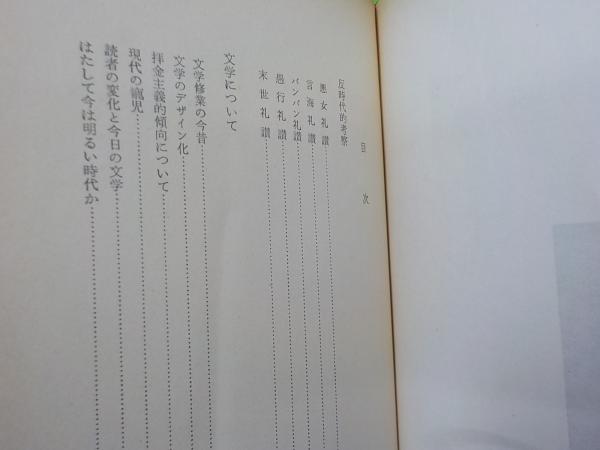 目次
反時代的考察
悪女礼讃
言海礼讃
パンパン礼讃
愚行礼讃
末世礼讃
文学について
文学修業の今昔
文学のデザイン化
拝金主義的傾向について
現代の寵児
読者の変化と今日の文学
はたして今は明るい時代か